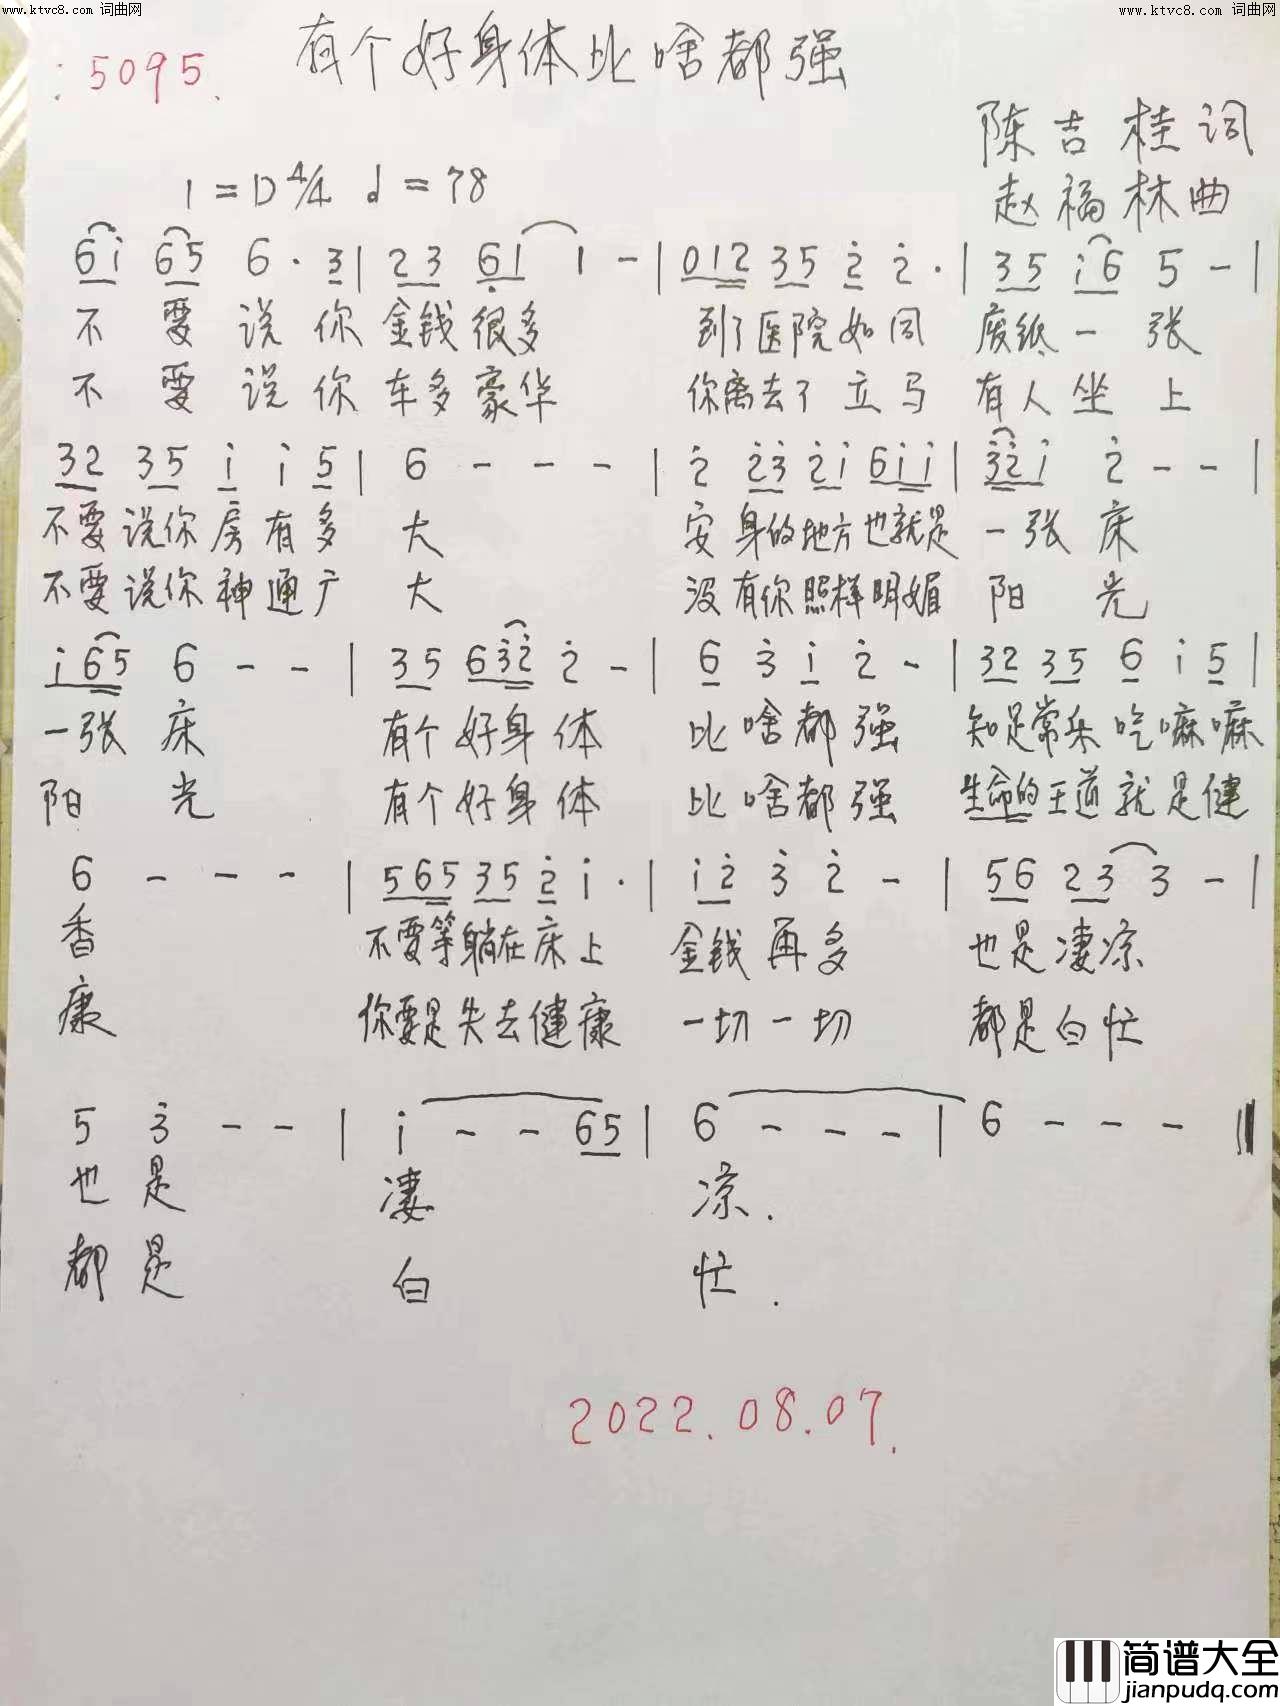 www.ktvc8.com 词曲网
www.ktvc8.com 词曲网
:5095. 有个好身体比啥都强
陈吉桂词
1=D 4/4 d=78 赵福林曲
6i 65 6·3|23 61 1-|012 35 2 2·|35 i6 5-|
不要说你金钱很多 到了医院如同 废纸一张
不要说你车多豪华 你离去了立马 有人坐上
32 35 i i 5|6---|2 23 2i 6ii|32i 2--|
不要说你房有多 大 安身的地方也就是 一张床
不要说你神通广 大 没有你照样明媚 阳光
i65 6--|35 632 2-|6 3 i 2-|32 35 6 i 5|
一张床 有个好身体 比啥都强 知足常乐吃嘛嘛
阳光 有个好身体 比啥都强 生命的王道就是健
6---|565 35 2 i·|i2 3 2-|56 23 3-|
香 不要等躺在床上 金钱再多 也是凄凉
康 你要是失去健康 一切一切 都是白忙
5 3--|i--65|6---|6---‖
也是 凄 凉.
都是 白 忙.
2022.08.07.
简谱大全
jianpudq.com